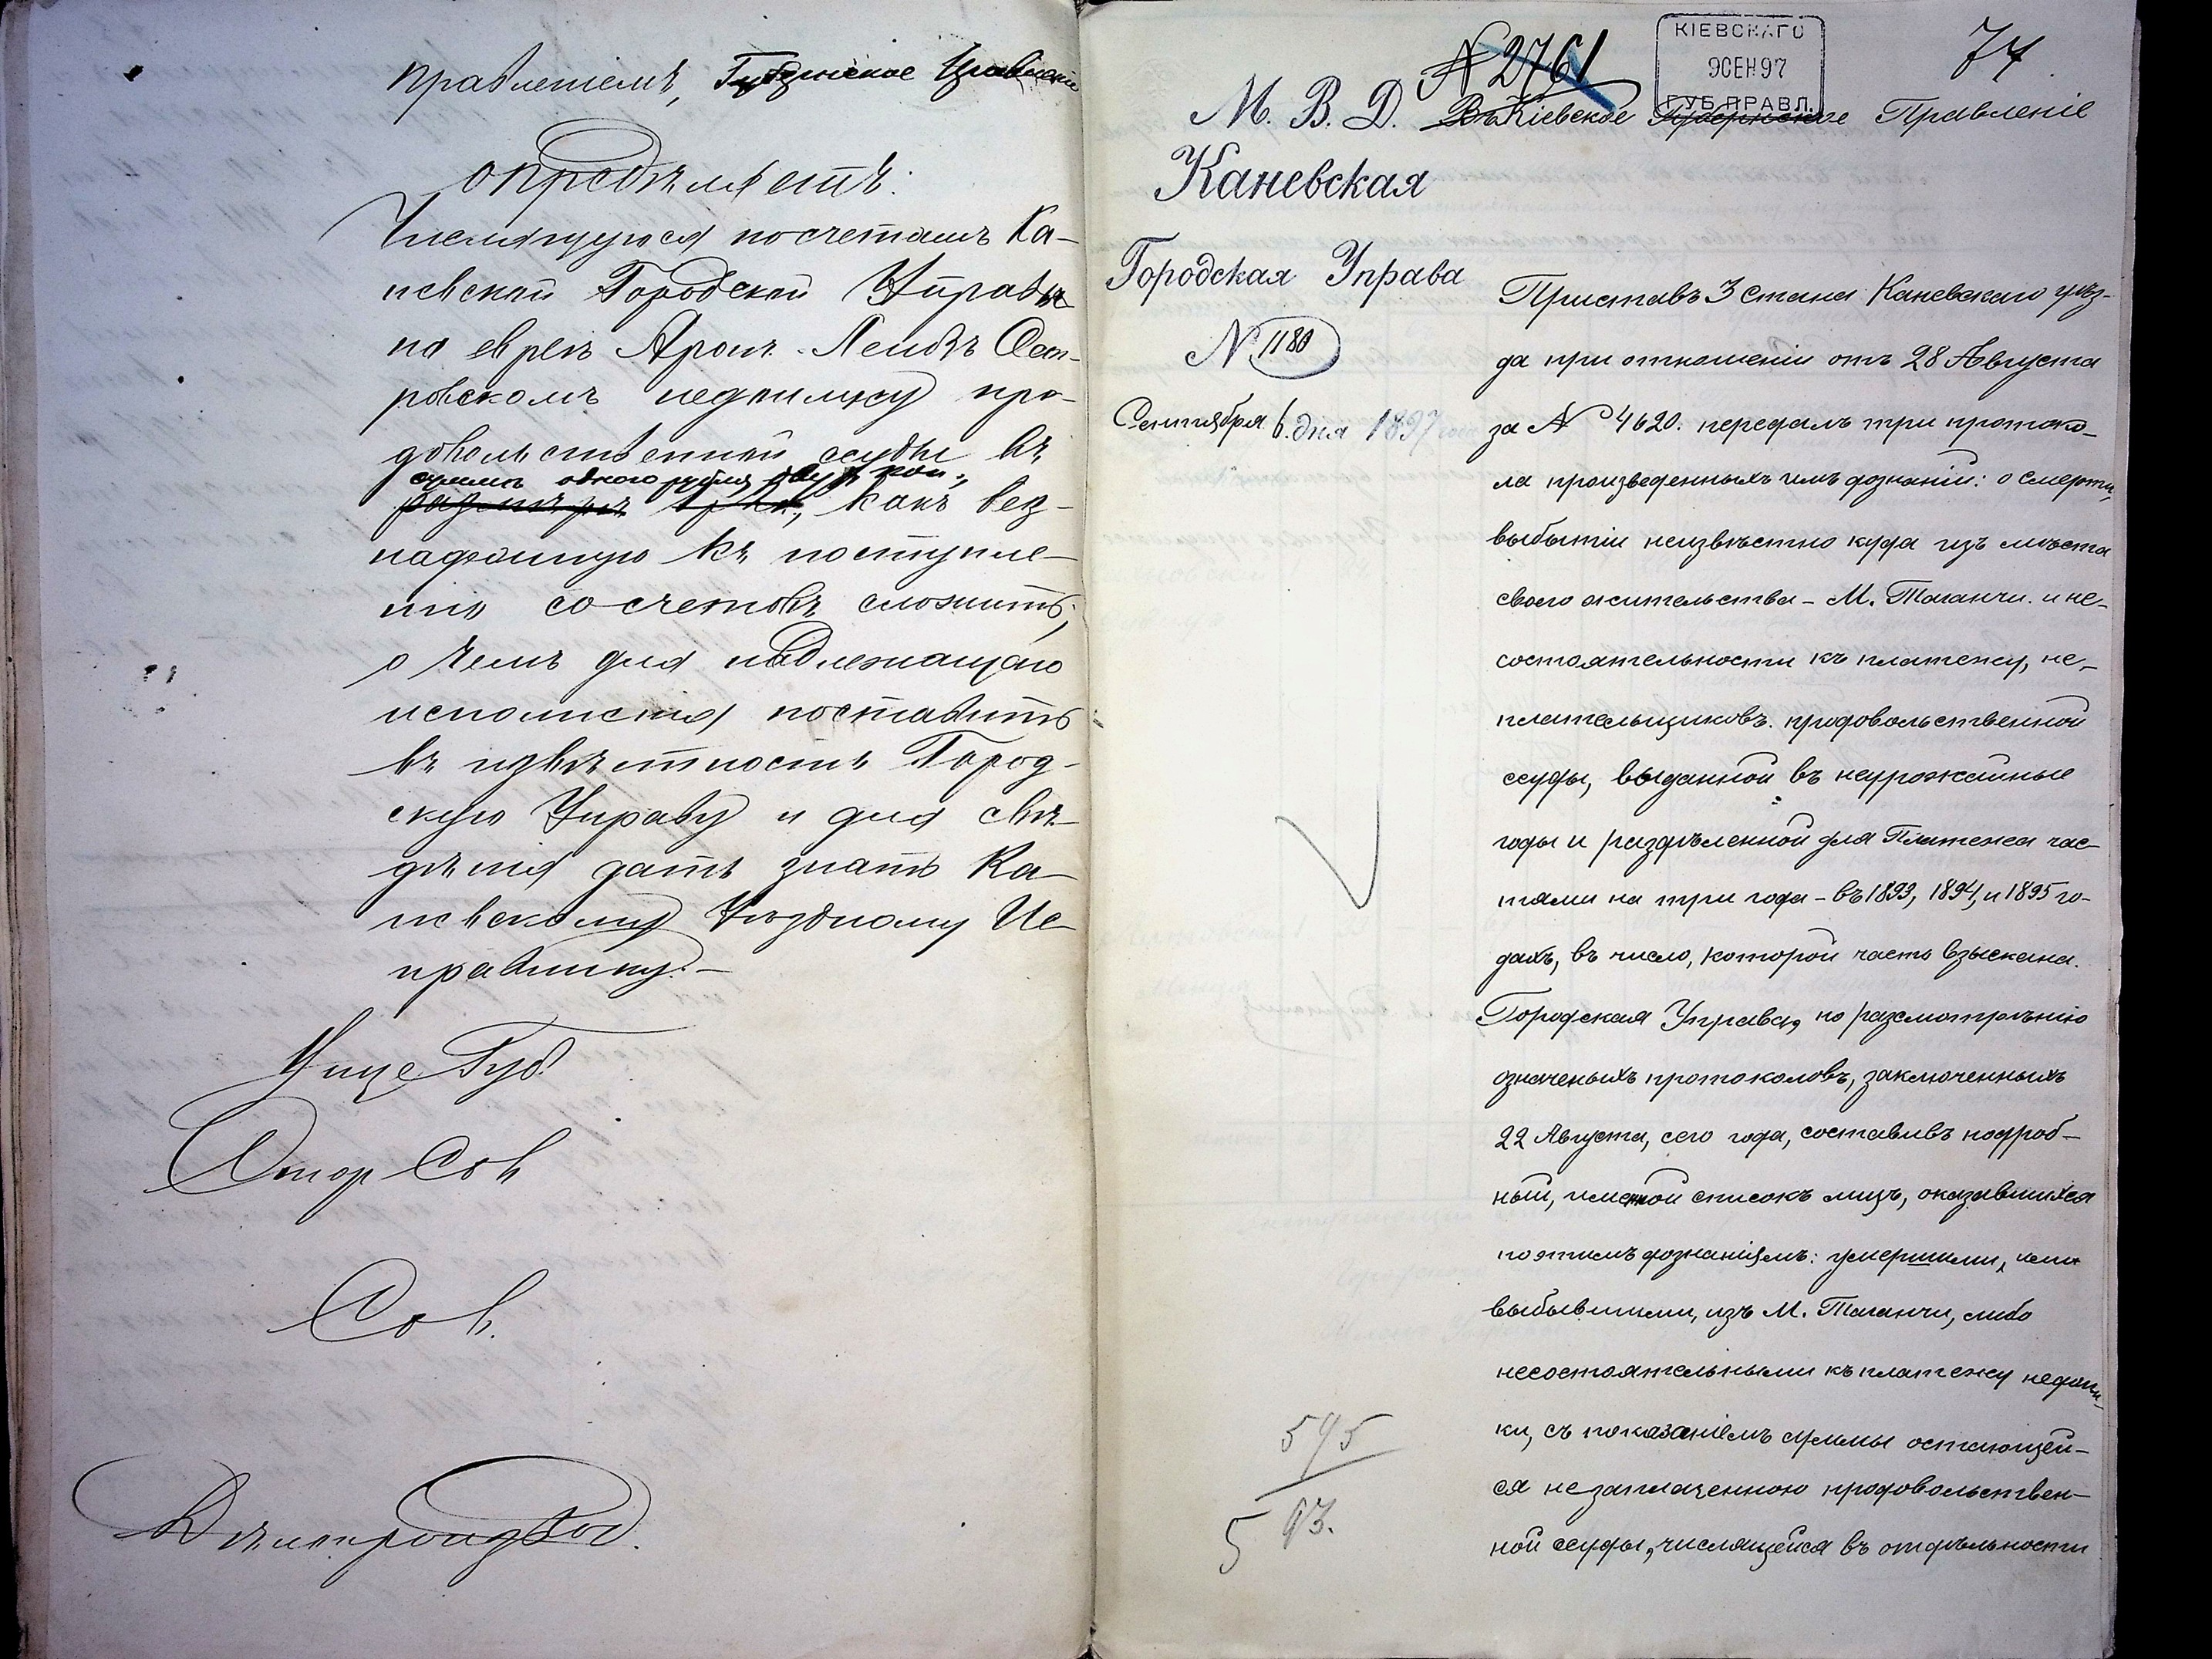 правленіемъ, Губернское Правленіе
опредѣляетъ:
Числящуюся по счетамъ Ка-
невской Городской Управы
на евреѣ Арон. Лейбѣ Ост-
ровскомъ недоимку про-
довольственной ссуды въ
суммѣ одного рубля двух коп.,
какъ без-
надежную къ поступле-
нію со счетовъ сложить,
о чемъ для надлежащаго
исполненія поставить
въ извѣстность Город-
скую Управу и для свѣ-
дѣнія дать знать Ка-
невскому Уѣздному Ис-
правнику.-
Вице Губ
Стар Сов
Сов.
Дѣлопроизвод.
КІЕВСКАГО
9 СЕН 97
ГУБ. ПРАВЛ.
74
№ 2761
М. В. Д. Въ Кіевское Губернское Правленіе
Каневская
Городская Управа
№ 1180
Сентября 6 дня 1897 года
Приставъ 3 стана Каневскаго уѣз-
да при отношеніи отъ 28 Августа
за № 4620. передалъ три протоко-
ла произведенныхъ имъ дознаній: о смерти,
выбытіи неизвѣстно куда изъ мѣста
своего жительства - М. Таганчи. и не-
состоятельности къ платежу, не-
плательщиковъ. продовольственной
ссуды, выданной въ неурожайные
годы и раздѣленной для Платежа час-
тями на три года - въ 1893, 1894, и 1895 го-
дахъ, въ число, которой часть взыскана.
Городская Управа, по разсмотрѣнію
означеныхъ протоколовъ, заключенныхъ
22 Августа, сего года, составивъ подроб-
ный, именной списокъ лицъ, оказавшихся
по этимъ дознаніямъ: умершими, или
выбывшими, изъ М. Таганчи, либо
несостоятельными къ платежу недоим-
ки, съ показаніемъ суммы остающей-
ся не заплаченною продовольствен-
ной ссуды, числящейся въ отдѣльности
595
5 93.